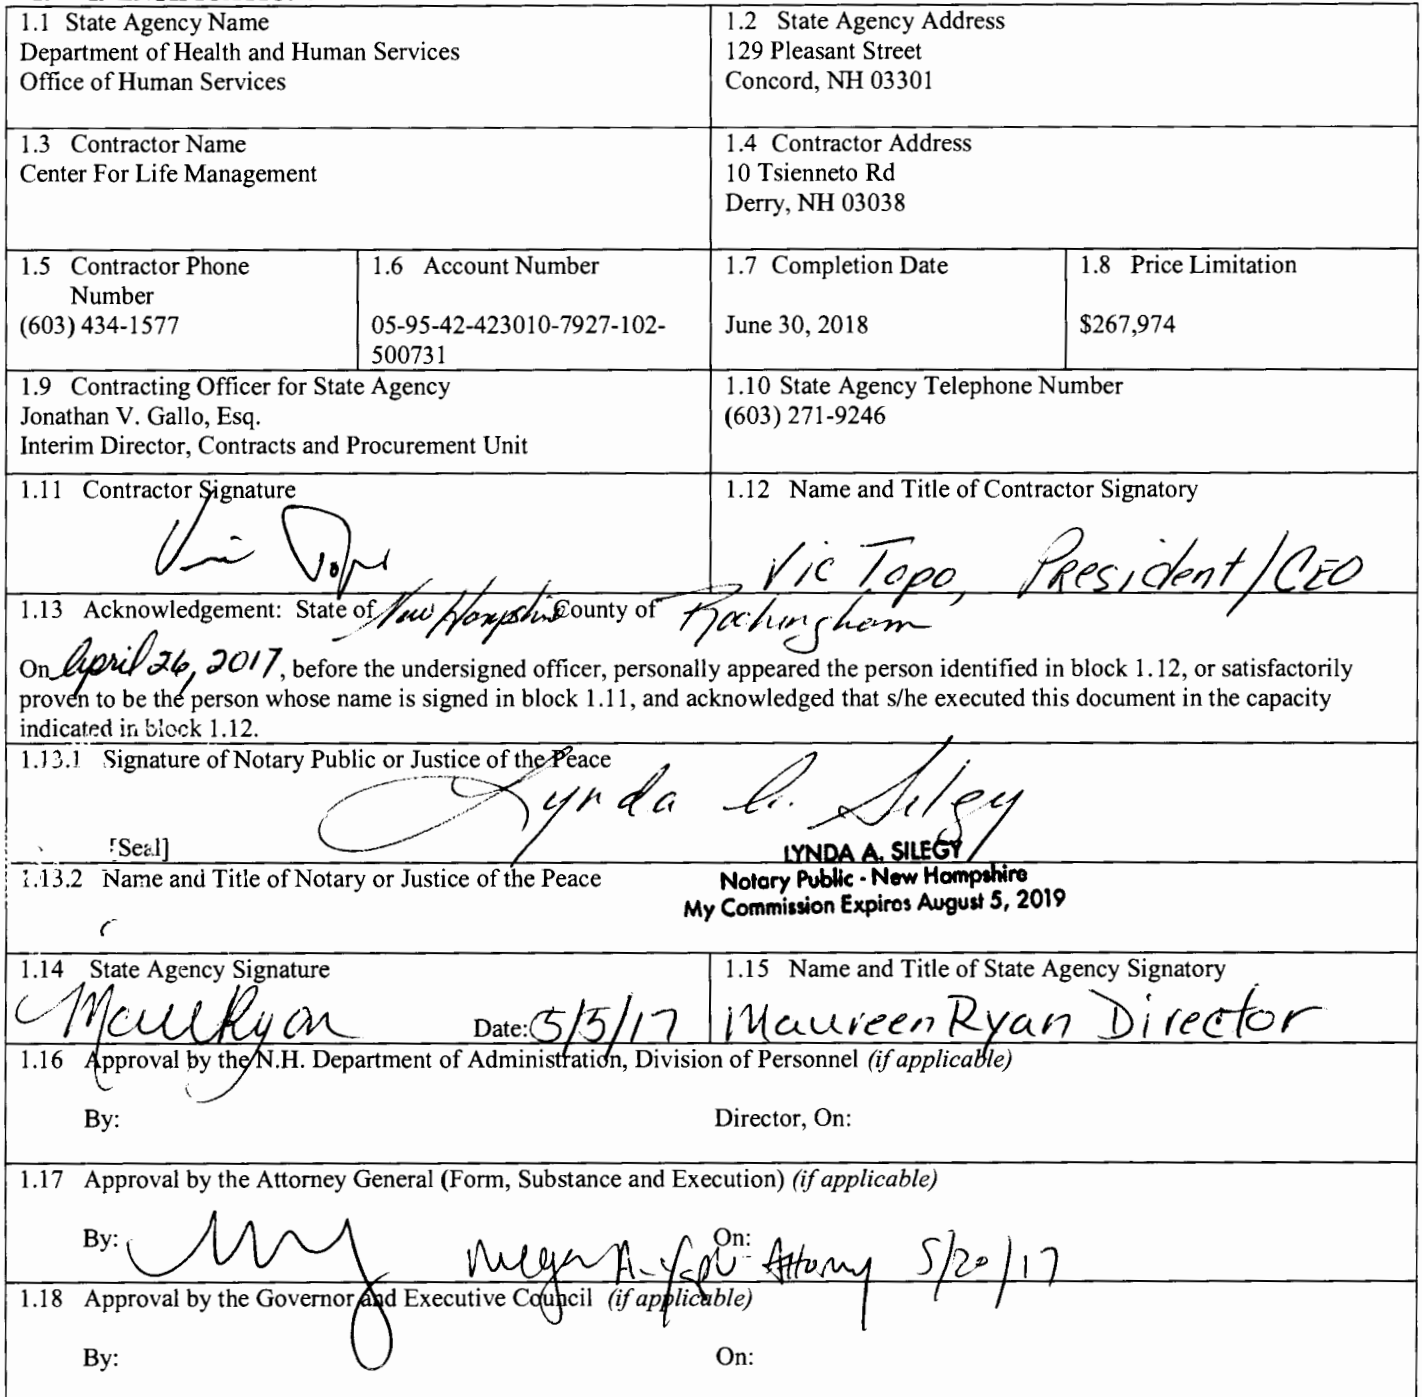 1.1 State Agency Name
Department of Health and Human Services
Office of Human Services
1.2 State Agency Address
129 Pleasant Street
Concord, NH 03301
1.3 Contractor Name
Center For Life Management
1.4 Contractor Address
10 Tsienneto Rd
Derry, NH 03038
1.5 Contractor Phone
Number
(603) 434-1577
1.6 Account Number
05-95-42-423010-7927-102-
500731
1.7 Completion Date
June 30, 2018
1.8 Price Limitation
$267,974
1.9 Contracting Officer for State Agency
Jonathan V. Gallo, Esq.
Interim Director, Contracts and Procurement Unit
1.10 State Agency Telephone Number
(603) 271-9246
1.11 Contractor Signature
Vic Topo
1.12 Name and Title of Contractor Signatory
Vic Topo, President/CEO
1.13 Acknowledgement: State of New Hampshire County of Rockingham
On April 26, 2017, before the undersigned officer, personally appeared the person identified in block 1.12, or satisfactorily
proven to be the person whose name is signed in block 1.11, and acknowledged that s/he executed this document in the capacity
indicated in block 1.12.
1.13.1 Signature of Notary Public or Justice of the Peace
Lynda A. Silegy
[Seal]
LYNDA A. SILEGY
1.13.2 Name and Title of Notary or Justice of the Peace
Notary Public - New Hampshire
My Commission Expires August 5, 2019
1.14 State Agency Signature
Date: 5/5/17
1.15 Name and Title of State Agency Signatory
Maureen Ryan Director
1.16 Approval by the N.H. Department of Administration, Division of Personnel (if applicable)
By:
Director, On:
1.17 Approval by the Attorney General (Form, Substance and Execution) (if applicable)
By:
On:
Megan A. Attorney 5/20/17
1.18 Approval by the Governor and Executive Council (if applicable)
By:
On: